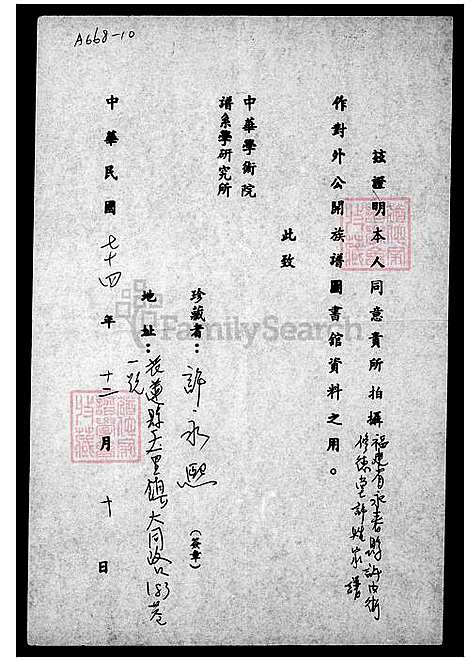 A668-10
茲證明本人同意貴所拍攝福建省永春縣許內街
修德堂許姓家譜
作對外公開族譜圖書館資料之用。
此致
中華學術院
譜系學研究所
珍藏者：許永熙（簽章）
地址：花蓮縣玉里鎮大同路183巷
一號
中華民國七十四年十二月十日
FamilySearch